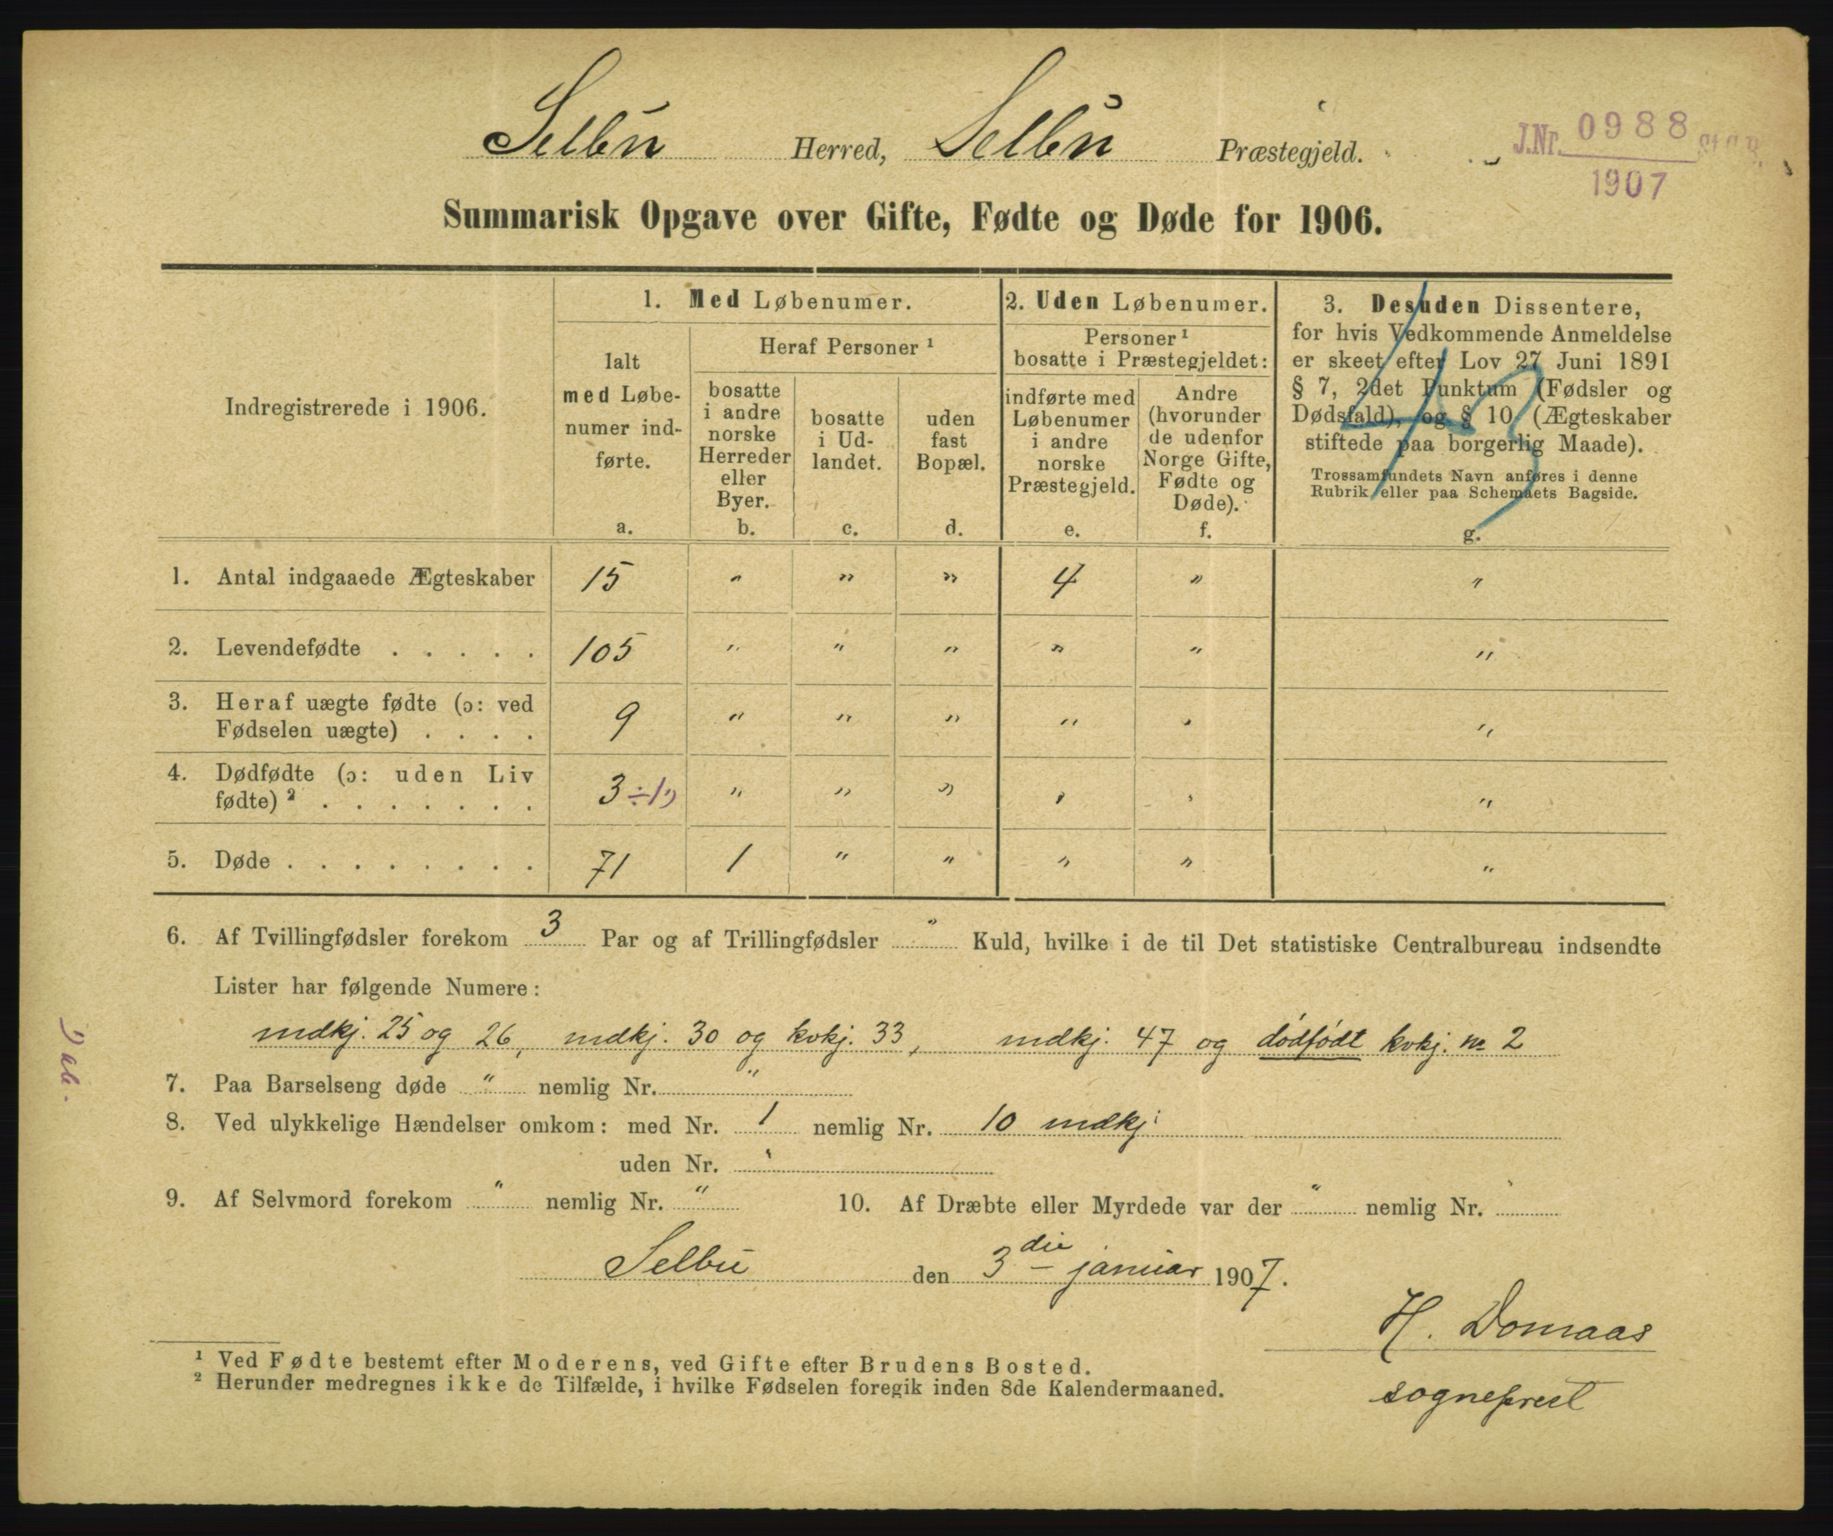 Selbu Herred, Selbu Præstegjeld.
J.Nr. 0988
1907
Summarisk Opgave over Gifte, Fødte og Døde for 1906.
Indregistrerede i 1906.
1. Med Løbenumer.
Ialt
med Løbe-
numer ind-
førte.
a.
Heraf Personer ¹
bosatte
i andre
norske
Herreder
eller
Byer.
b.
bosatte
i Ud-
landet.
c.
uden
fast
Bopæl.
d.
2. Uden Løbenumer.
Personer ¹
bosatte i Præstegjeldet:
indførte med
Løbenumer
i andre
norske
Præstegjeld.
e.
Andre
(hvorunder
de udenfor
Norge Gifte,
Fødte og
Døde).
f.
3. Desuden Dissentere,
for hvis Vedkommende Anmeldelse
er skeet efter Lov 27 Juni 1891
§ 7, 2det Punktum (Fødsler og
Dødsfald), og § 10 (Ægteskaber
stiftede paa borgerlig Maade).
Trossamfundets Navn anføres i denne
Rubrik eller paa Schemaets Bagside.
g.
1. Antal indgaaede Ægteskaber 15 " " " 4 " "
2. Levendefødte . . . . . 105 " " " " " "
3. Heraf uægte fødte (ɔ: ved
Fødselen uægte) . . . . 9 " " " " " "
4. Dødfødte (ɔ: uden Liv
fødte) ² . . . . . . . 3 ÷1) " " " " " "
5. Døde . . . . . . . . 71 1 " " " " "
6. Af Tvillingfødsler forekom 3 Par og af Trillingfødsler " Kuld, hvilke i de til Det statistiske Centralbureau indsendte
Lister har følgende Numere:
mdkj. 25 og 26, mdkj. 30 og kvkj. 33, mdkj. 47 og dødfødt kvkj. no 2
7. Paa Barselseng døde " nemlig Nr. "
8. Ved ulykkelige Hændelser omkom: med Nr. 1 nemlig Nr. 10 mdkj.
uden Nr. "
9. Af Selvmord forekom " nemlig Nr. " 10. Af Dræbte eller Myrdede var der " nemlig Nr. "
Selbu den 3die januar 1907.
H. Domaas
sogneprest
¹ Ved Fødte bestemt efter Moderens, ved Gifte efter Brudens Bosted.
² Herunder medregnes ikke de Tilfælde, i hvilke Fødselen foregik inden 8de Kalendermaaned.